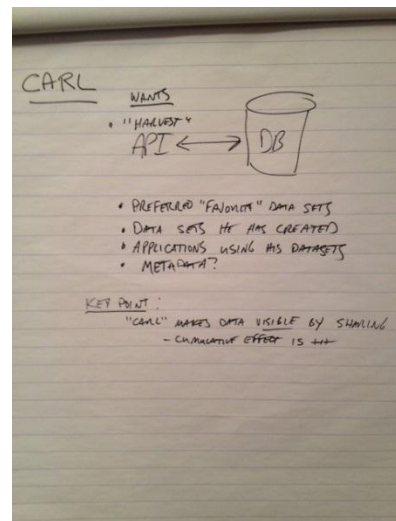 CARL
WANTS
• "HARVEST"
API ↔ DB
• PREFERRED "FAVORITE" DATA SETS
• DATA SETS HE HAS CREATED
• APPLICATIONS USING HIS DATASETS
• METADATA?
KEY POINT:
"CARL" MAKES DATA VISIBLE BY SHARING
- CUMULATIVE EFFECT IS